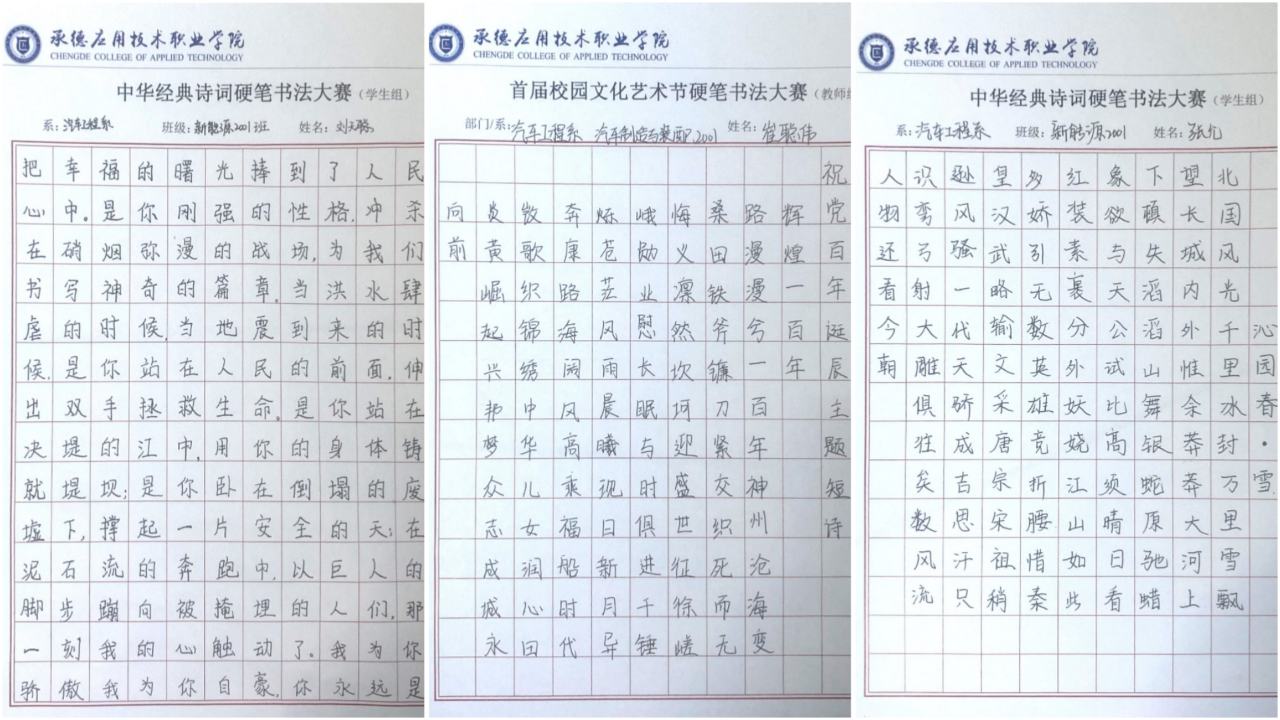 承德应用技术职业学院
CHENGDE COLLEGE OF APPLIED TECHNOLOGY
中华经典诗词硬笔书法大赛（学生组）
系：汽车工程系 班级：新能源2001班 姓名：
把幸福的曙光捧到了人民
心中。是你刚强的性格，冲杀
在硝烟弥漫的战场，为我们
书写神奇的篇章。当洪水肆
虐的时候，当地震到来的时
候，是你站在人民的前面，伸
出双手拯救生命。是你站在
决堤的江中，用你的身体铸
就堤坝；是你卧在倒塌的废
墟下，撑起一片安全的天；在
泥石流的奔跑中，以巨人的
脚步蹦向被掩埋的人们，那
一刻我的心触动了。我为你
骄傲我为你自豪，你永远是
承德应用技术职业学院
CHENGDE COLLEGE OF APPLIED TECHNOLOGY
首届校园文化艺术节硬笔书法大赛（教师组
部门/系：汽车工程系 汽车制造与装配2001 姓名：崔聪伟
祝党百年诞辰主题短诗
辉煌一百年
路漫漫兮一百年神州沧海变
桑田铁斧镰刀紧交织死而无
悔义凛然坎坷迎盛世征徐嵯
峨勋业慰长眠与时俱进千锤
烁苍芸风雨晨曦现日新月异
奔康路海阔风高乘福船时代
数歌织锦绣中华儿女润心田
炎黄崛起兴邦梦众志成城永
向前
承德应用技术职业学院
CHENGDE COLLEGE OF APPLIED TECHNOLOGY
中华经典诗词硬笔书法大赛（学生组）
系：汽车工程系 班级：新能源2001 姓名：张允
沁园春·雪
北国风光千里冰封万里雪飘
望长城内外惟余莽莽大河上
下顿失滔滔山舞银蛇原驰蜡
象欲与天公试比高须晴日看
红装素裹分外妖娆江山如此
多娇引无数英雄竞折腰惜秦
皇汉武略输文采唐宗宋祖稍
逊风骚一代天骄成吉思汗只
识弯弓射大雕俱往矣数风流
人物还看今朝